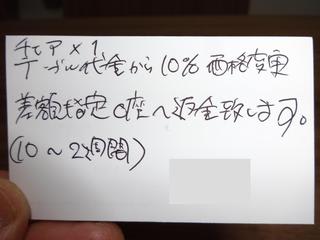 チェア×1
テーブル代金から10%価格変更
差額も指定口座へ返金致します。
(10～2週間)